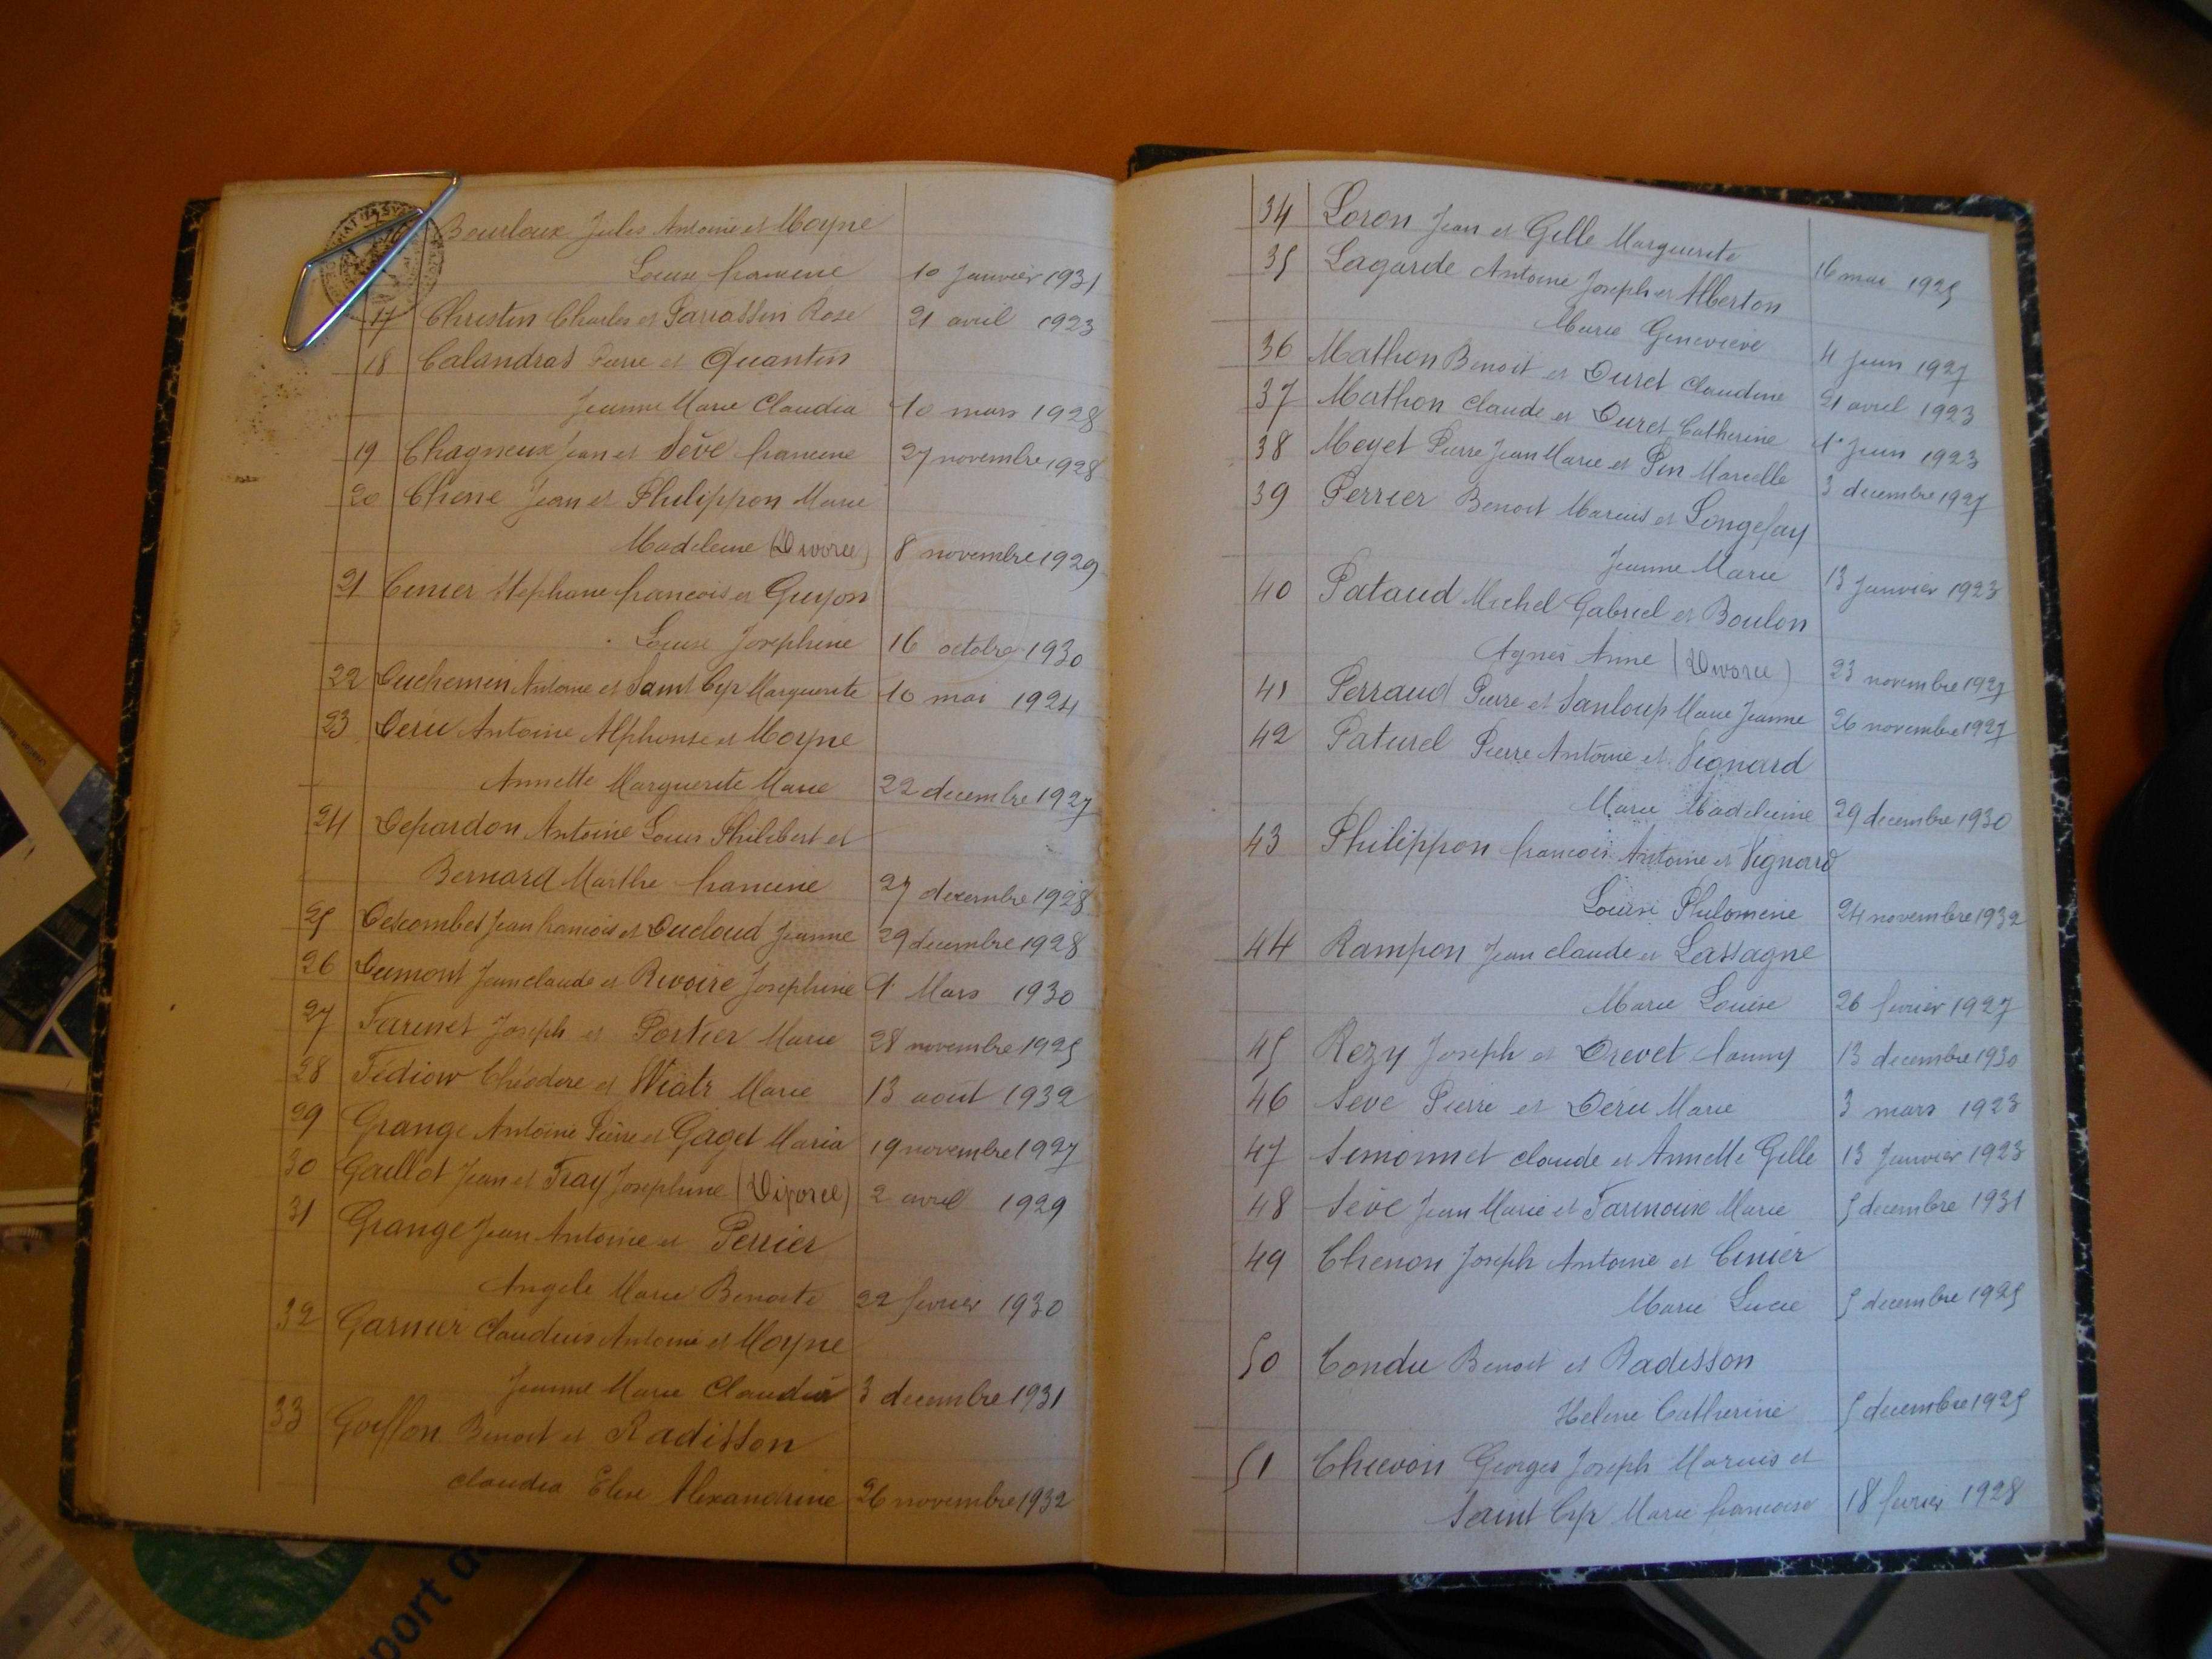 Bourloux Jules Antoine et Moyne
Louise francine 10 Janvier 1931
17 Christin Charles et Sarrassin Rose 21 avril 1923
18 Calandras Pierre et Quantin
Jeanne Marie Claudia 10 mars 1928
19 Chagneux Jean et Sève francine 27 novembre 1928
20 Chene Jean et Philippon Marie
Madeleine (Divorce) 8 novembre 1929
21 Cinier Stephane francois et Guyon
Louise Josephine 16 octobre 1930
22 Duchemin Antoine et Saint Cyr Marguerite 10 mai 1924
23 Deriu Antoine Alphonse et Moyne
Annette Marguerite Marie 22 decembre 1927
24 Depardon Antoine Louis Philibert et
Bernard Marthe francine 27 decembre 1928
25 Descombes Jean francois et Ducloud Jeanne 29 decembre 1928
26 Dumont Jean claude et Rivoire Josephine 1 Mars 1930
27 Farinet Joseph et Portier Marie 28 novembre 1925
28 Fédiow Théodore et Wiatr Marie 13 aout 1932
29 Grange Antoine Pierre et Gaget Maria 19 novembre 1927
30 Gaillot Jean et Fray Josephine (Divorce) 2 avril 1929
31 Grange Jean Antoine et Perrier
Angele Marie Benoite 22 fevrier 1930
32 Garnier Claudius Antoine et Moyne
Jeanne Marie Claudia 3 decembre 1931
33 Goiffon Benoit et Radisson
claudia Elise Alexandrine 26 novembre 1932
34 Loron Jean et Gelle Marguerite 16 mai 1925
35 Lagarde Antoine Joseph et Alberton
Marie Geneviève 4 Juin 1927
36 Mathon Benoit et Duret Claudine 21 avril 1923
37 Mathon Claude et Duret Catherine 1° Juin 1923
38 Meyet Pierre Jean Marie et Pin Marcelle 3 decembre 1927
39 Perrier Benoit Marius et Longefay
Jeanne Marie 13 Janvier 1923
40 Pataud Michel Gabriel et Boulon
Agnes Anne (Divorce) 23 novembre 1927
41 Perraud Pierre et Sanloup Marie Jeanne 26 novembre 1927
42 Paturel Pierre Antoine et Vignard
Marie Madeleine 29 decembre 1930
43 Philippon francois Antoine et Vignard
Louise Philomene 24 novembre 1932
44 Rampon Jean claude et Lassagne
Marie Louise 26 fevrier 1927
45 Rezy Joseph et Drevet fanny 13 decembre 1930
46 Seve Pierre et Dériu Marie 3 mars 1923
47 Simonnet claude et Annette Gelle 13 Janvier 1923
48 Sève Jean Marie et Farinoux Marie 5 decembre 1931
49 Thenon Joseph Antoine et Cinier
Marie Lucie 5 decembre 1925
50 Tondu Benoit et Radisson
Helene Catherine 5 decembre 1925
51 Thévon Georges Joseph Marius et
Saint Cyr Marie francoise 18 fevrier 1928
port d